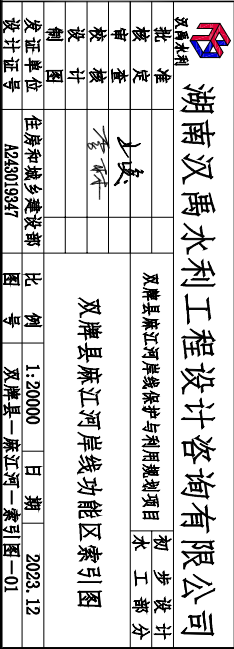 汉禹水利
湖南汉禹水利工程设计咨询有限公司
批准
核定
审查
校核
设计
制图
双牌县麻江河岸线保护与利用规划项目
初步设计
水工部分
双牌县麻江河岸线功能区索引图
发证单位 住房和城乡建设部 比例 1:20000 日期 2023.12
设计证号 A243019347 图号 双牌县-麻江河-索引图-01